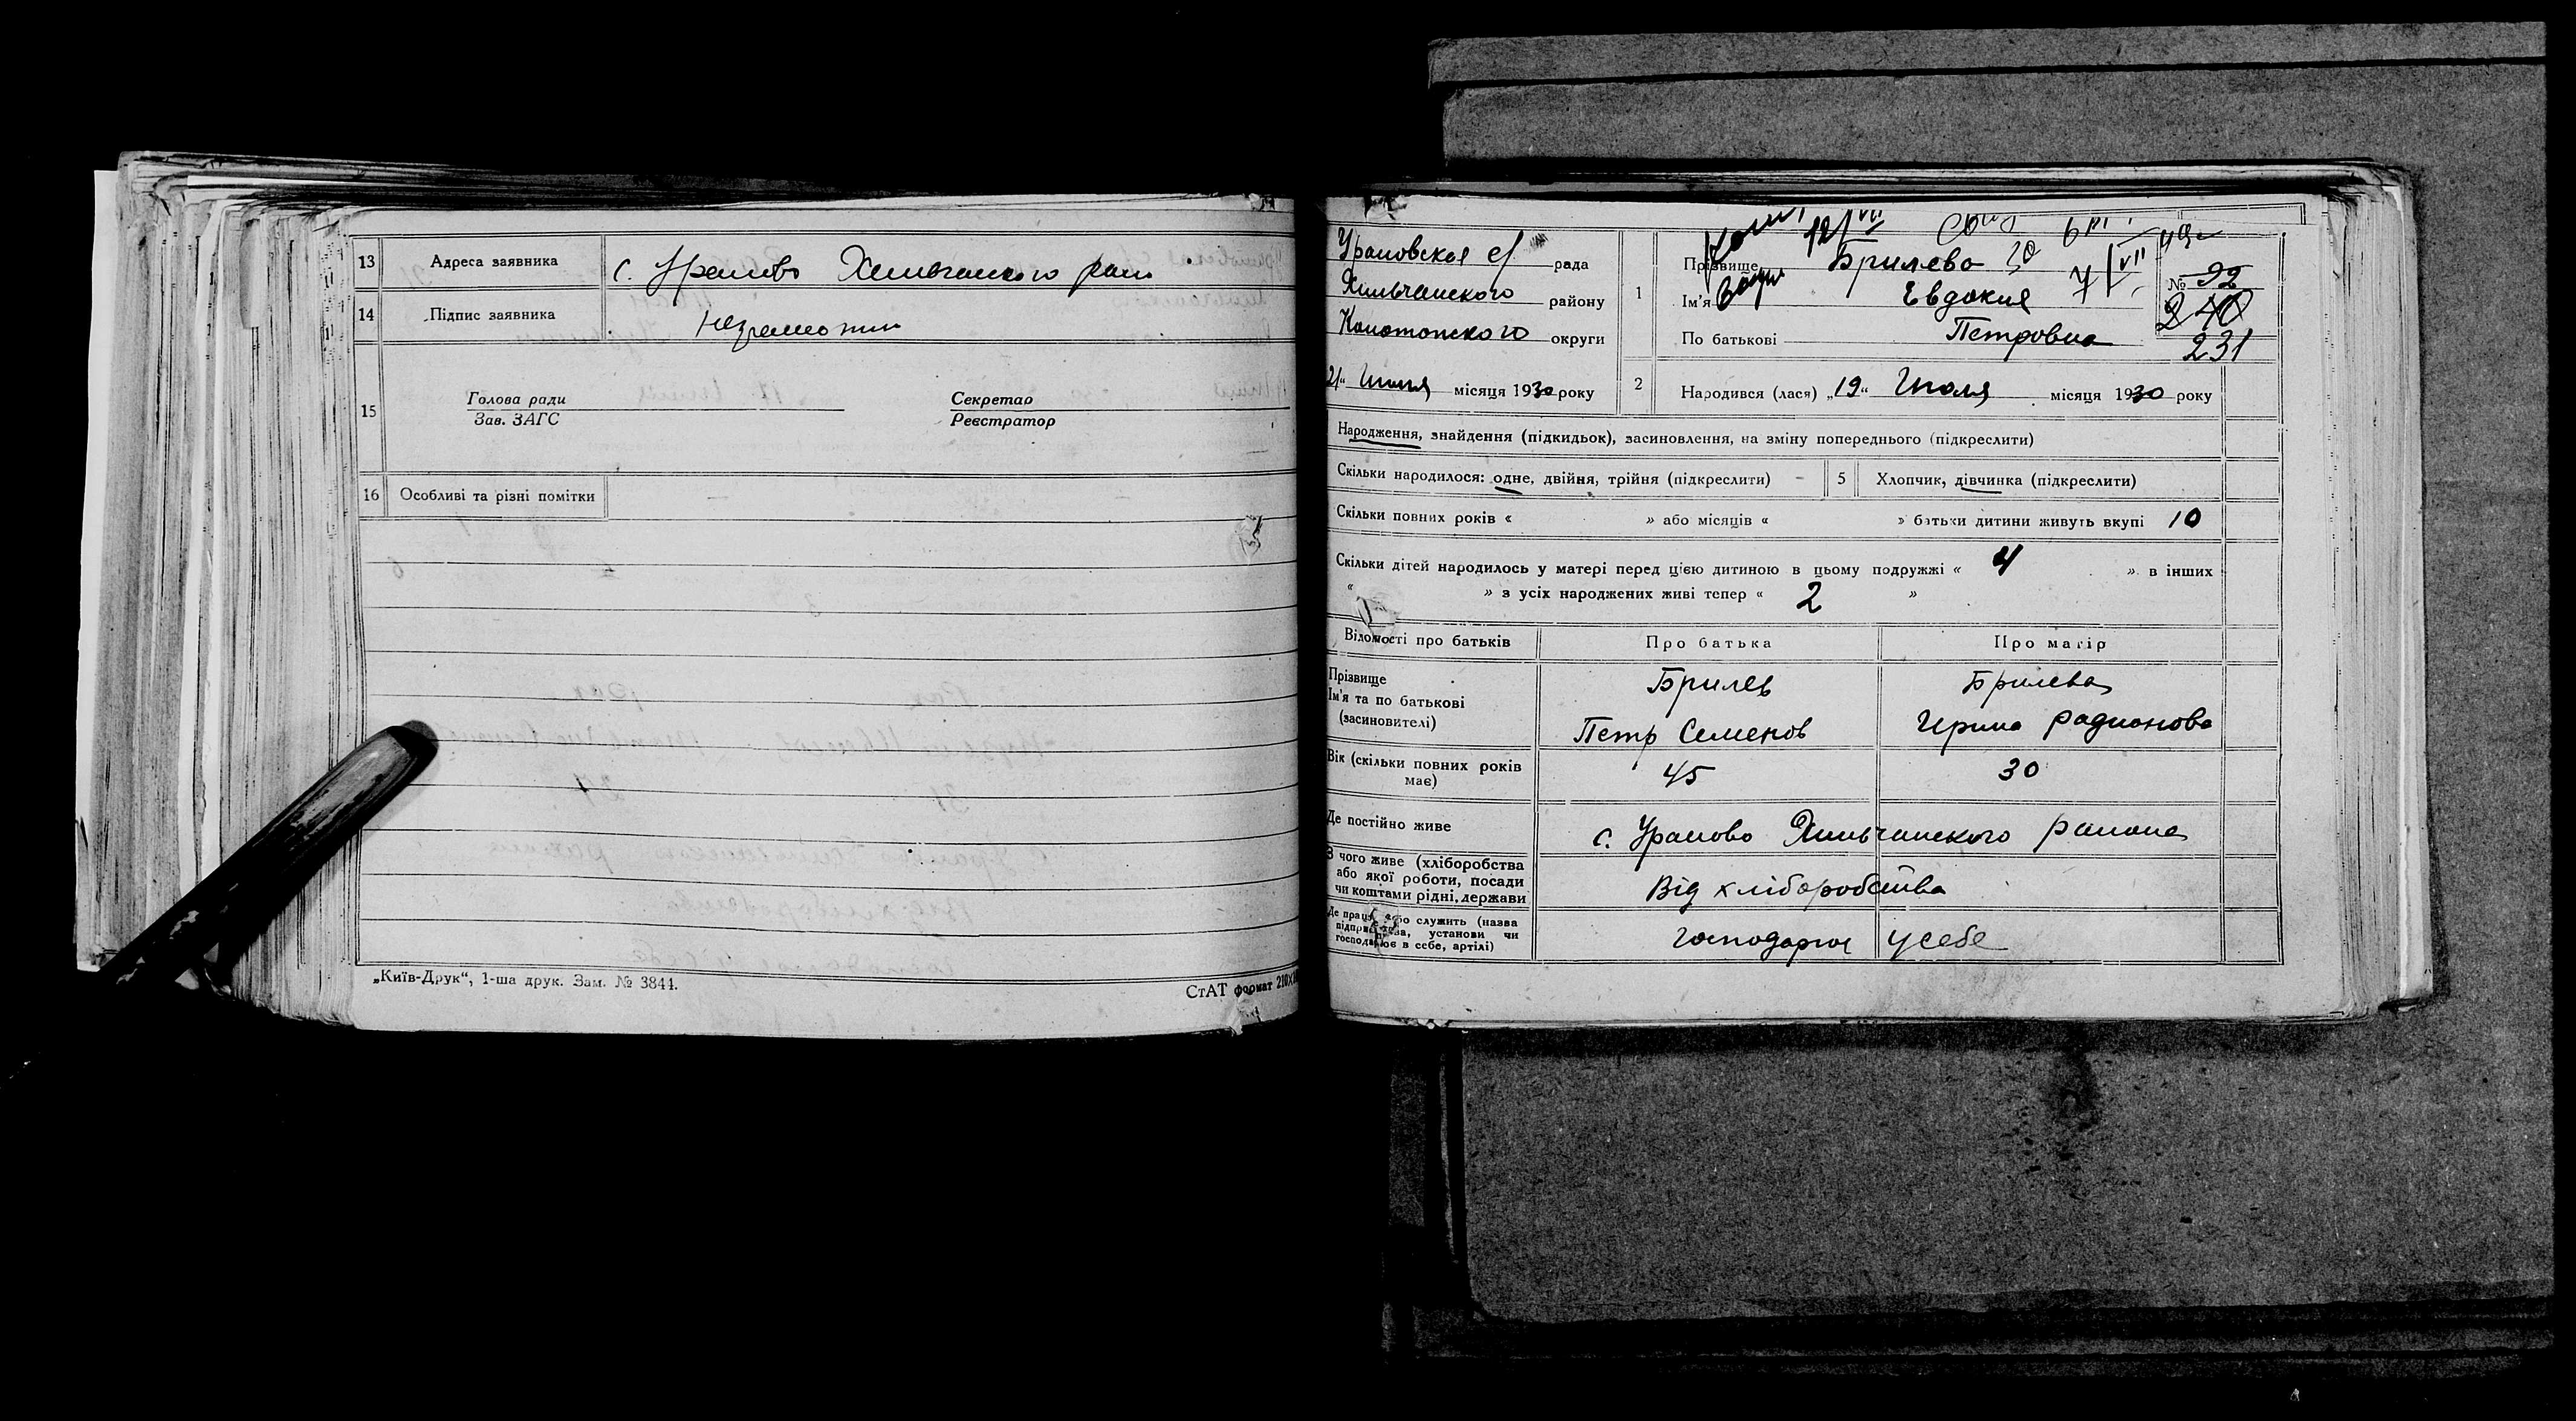 13 Адреса заявника с. Уралово Хильчанского рай
14 Підпис заявника неграмотни
15 Голова ради Секретар
Зав. ЗАГС Реєстратор
16 Особливі та різні помітки
„Київ-Друк“, 1-ша друк. Зам. № 3844.
СтАТ формат 210×
Ураловская с/ рада
Хильчанского району
Конотопского округи
21“ Июля місяця 1930 року
12/VII
1 Прізвище Брилева
7/VII
№ 92
Ім'я Евдокия
240
По батькові Петровна
231
2 Народився (лася) „19“ Июля місяця 1930 року
Народження, знайдення (підкидьок), засиновлення, на зміну попереднього (підкреслити)
Скільки народилося: одне, двійня, трійня (підкреслити) 5 Хлопчик, дівчинка (підкреслити)
Скільки повних років « » або місяців « » батьки дитини живуть вкупі 10
Скільки дітей народилось у матері перед цією дитиною в цьому подружжі « 4 » в інших
« » з усіх народжених живі тепер « 2 »
Відомості про батьків Про батька Про матір
Прізвище Брилев Брилева
Ім'я та по батькові
(засиновителі) Петр Семенов Ирина Радионова
Вік (скільки повних років має) 45 30
Де постійно живе с. Уралово Хильчанского района
З чого живе (хліборобства
або якої роботи, посади
чи коштами рідні, держави Від хліборобства
Де працює або служить (назва
підприємства, установи чи
господарює в себе, артілі) Господарює у себе